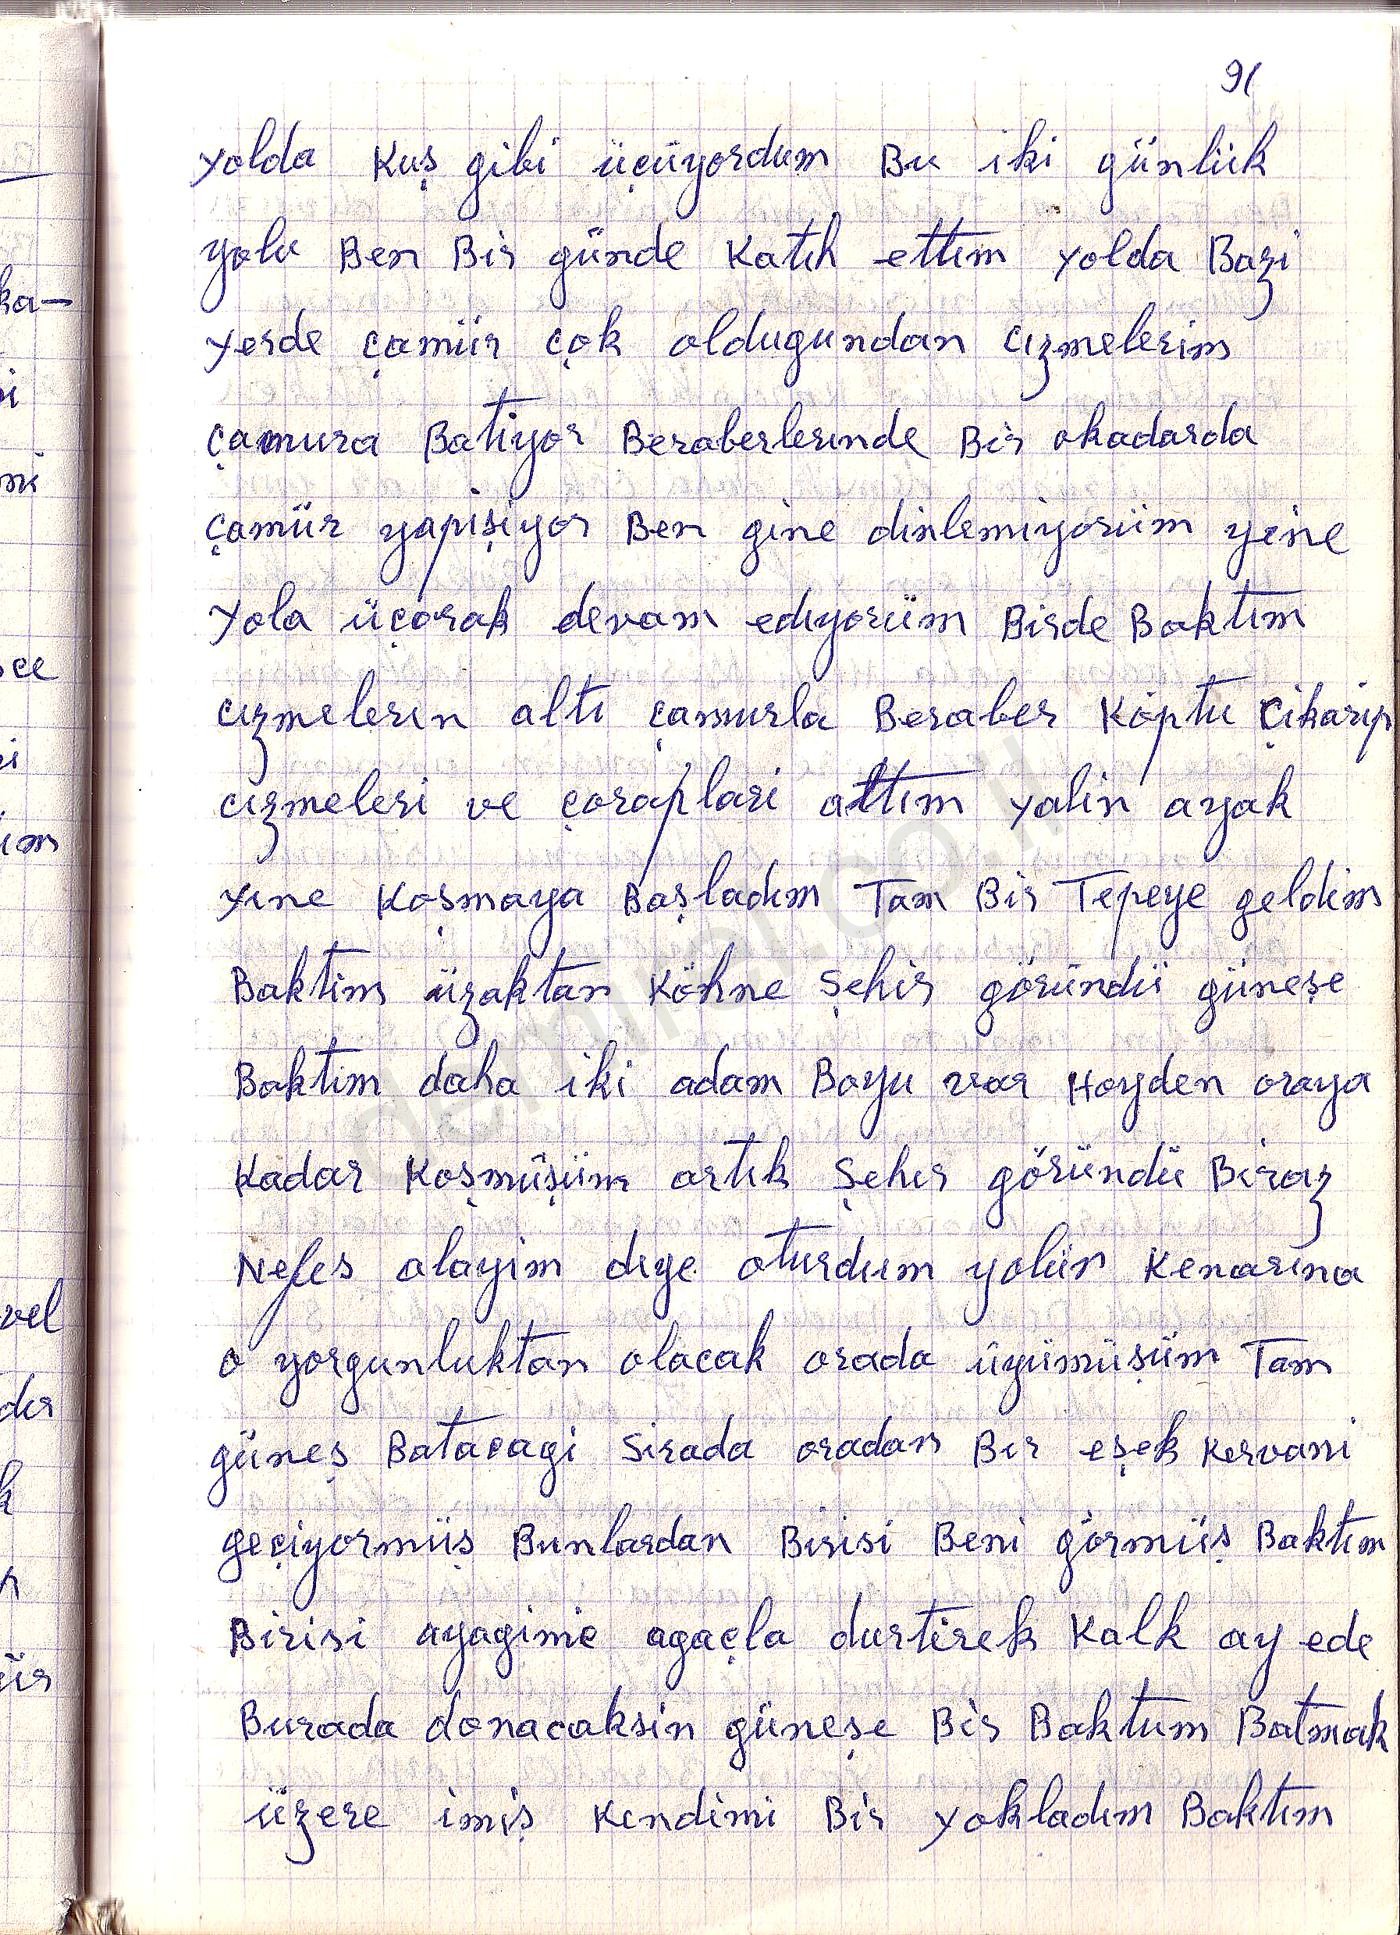 91
Yolda Kuş gibi üçüyordum Bu iki günlük
yolu Ben Bir günde Katıh ettım yolda Bazi
yerde çamür çok oldugundan cızmelerim
çamura Batiyor Beraberlerınde Bir okadarda
çamür yapişiyor Ben gine dinlemiyorüm yine
Yola üçorak devam edıyorüm Birde Baktım
cızmelerın altı çamurla Beraber Koptu çikarip
cızmeleri ve çoraplari attım yalin ayak
yıne Koşmaya Başladım Tam Bir Tepeye geldim
Baktim üzaktan Köhne Şehir göründü güneşe
Baktım daha iki adam Boyu var Hoyden oraya
Kadar Koşmüşüm artık Şehır göründü Biraz
Nefes alayim dıye oturdum yolün Kenarına
o yorgunluktan olacak orada üyümüşüm Tam
güneş Batacagi Sirada oradan Bır eşek Kervani
geçiyormüş Bunlardan Birisi Beni görmüş Baktım
Birisi ayagime agaçla durtirek Kalk ay ede
Burada donacaksin güneşe Bir Baktum Batmak
üzere imiş Kendimi Bir yokladım Baktım
ka-
i
mi
ce
i
ım
vel
der
k
ür
demirel.co.il